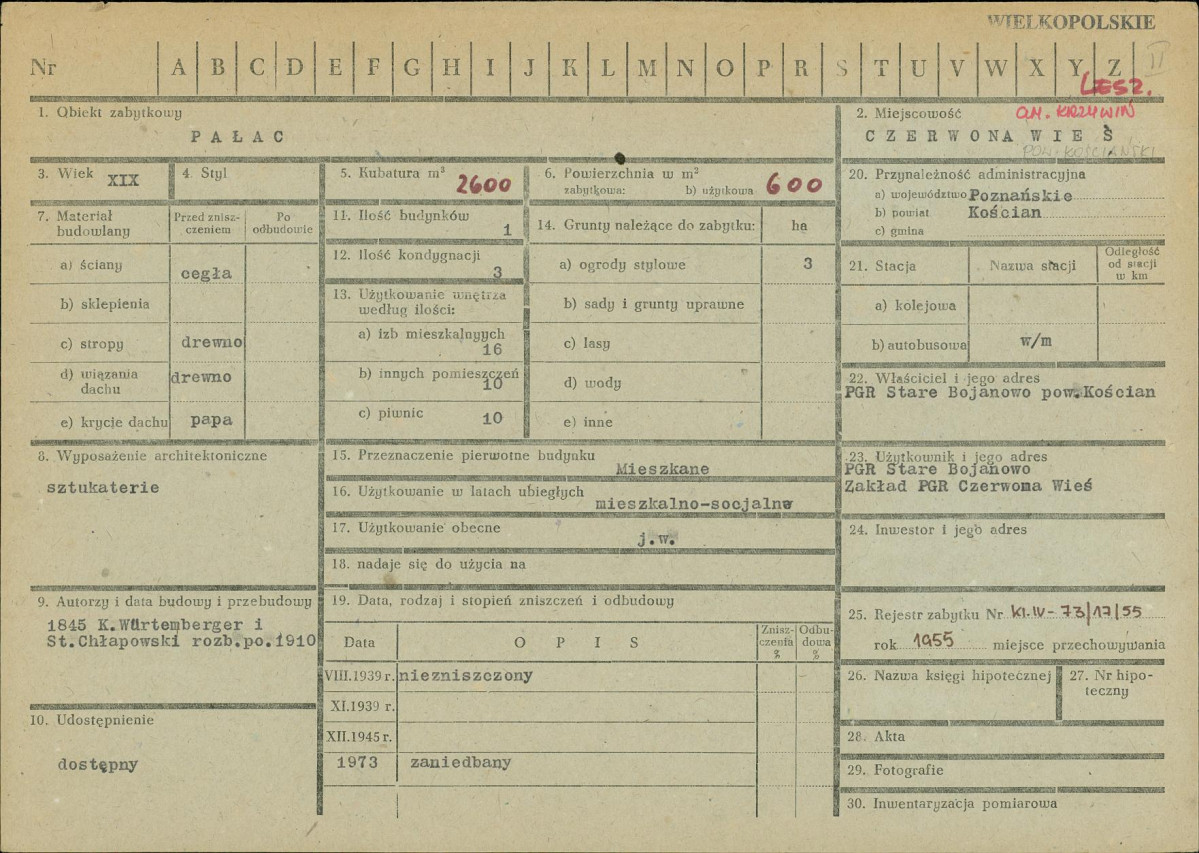 WIELKOPOLSKIE
Nr A B C D E F G H I J K L M N O P R S T U V W X Y Z II
LESZ.
1. Obiekt zabytkowy
PAŁAC
2. Miejscowość GM. KRZYWIŃ
CZERWONA WIEŚ
POW. KOŚCIAŃSKI
3. Wiek XIX
4. Styl
5. Kubatura m³ 2600
6. Powierzchnia w m²
zabytkowa: b) użytkowa 600
20. Przynależność administracyjna
a) województwo Poznańskie
b) powiat Kościan
c) gmina
7. Materiał budowlany
Przed zniszczeniem
Po odbudowie
a) ściany cegła
b) sklepienia
c) stropy drewno
d) wiązania dachu drewno
e) krycie dachu papa
11. Ilość budynków 1
12. Ilość kondygnacji 3
13. Użytkowanie wnętrza według ilości:
a) izb mieszkalnyych 16
b) innych pomieszczeń 10
c) piwnic 10
14. Grunty należące do zabytku: ha
a) ogrody stylowe 3
b) sady i grunty uprawne
c) lasy
d) wody
e) inne
21. Stacja
Nazwa stacji
Odległość od stacji w km
a) kolejowa
b) autobusowa w/m
22. Właściciel i jego adres
PGR Stare Bojanowo pow.Kościan
8. Wyposażenie architektoniczne
sztukaterie
15. Przeznaczenie pierwotne budynku
Mieszkane
16. Użytkowanie w latach ubiegłych
mieszkalno-socjalne
17. Użytkowanie obecne
j.w.
18. nadaje się do użycia na
23. Użytkownik i jego adres
PGR Stare Bojanowo
Zakład PGR Czerwona Wieś
24. Inwestor i jego adres
9. Autorzy i data budowy i przebudowy
1845 K.Würtemberger i
St.Chłapowski rozb.po.1910
10. Udostępnienie
dostępny
19. Data, rodzaj i stopień zniszczeń i odbudowy
Data
OPIS
Zniszczenia %
Odbudowa %
VIII.1939 r. niezniszczony
XI.1939 r.
XII.1945 r.
1973 zaniedbany
25. Rejestr zabytku Nr Kl.IV-73/17/55
rok 1955 miejsce przechowywania
26. Nazwa księgi hipotecznej
27. Nr hipoteczny
28. Akta
29. Fotografie
30. Inwentaryzacja pomiarowa